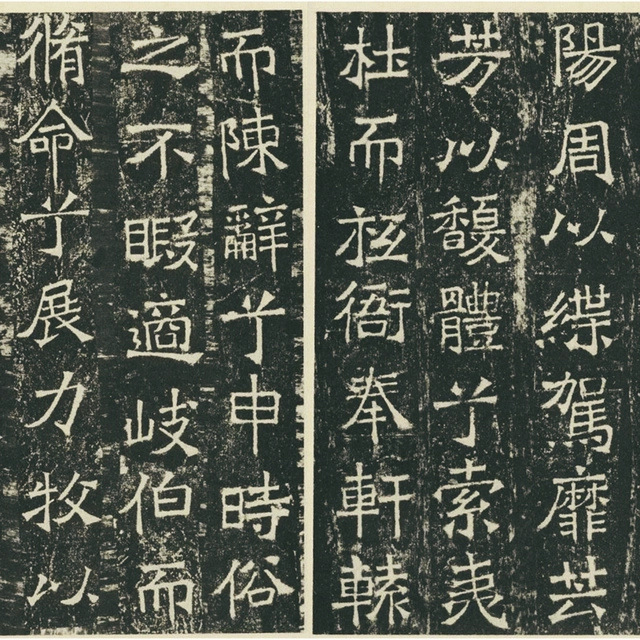 陽周以緤駕靡芸
芳以馥體兮索夷
杜而衙奉軒轅
而陳辭兮申時俗
之不暇適岐伯而
脩命兮展力牧以